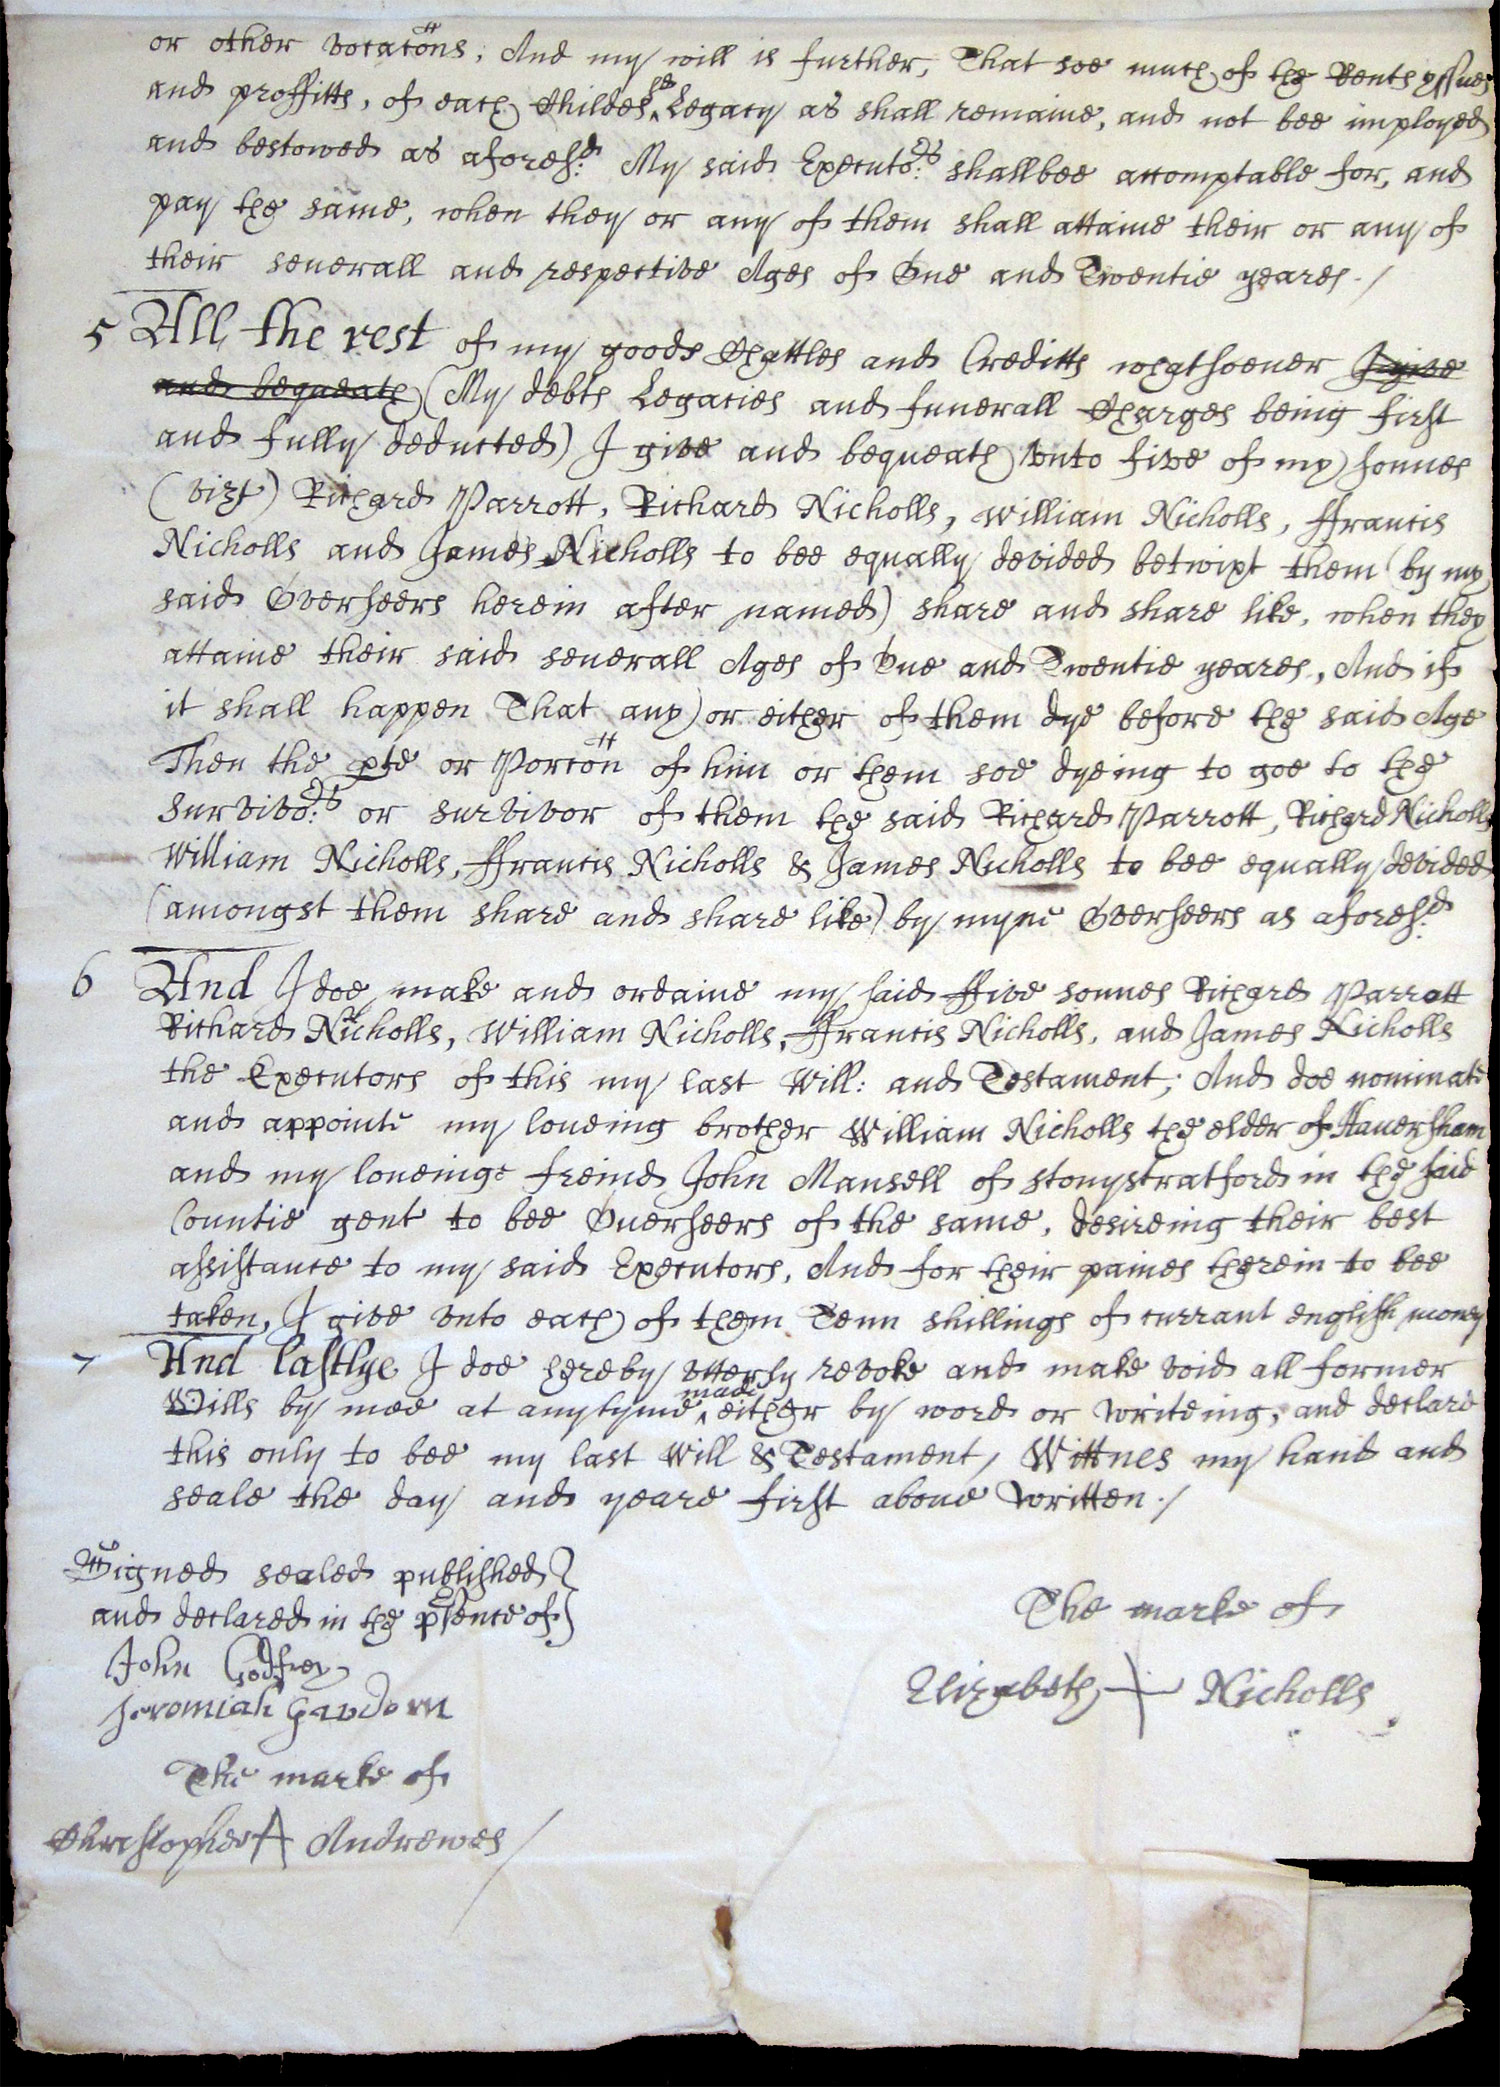 or other vocacons, And my will is further, That soe much of the Rents yssues
and proffitts, of each Childes sd Legacy as shall remaine, and not bee imployed
and bestowed as aforesd: My said Executo:rs shallbee accomptable for, and
pay the same, when they or any of them shall attaine their or any of
their seuerall and respective Ages of One and Twentie yeares./
5 All the rest of my goods Chattles and Creditts whatsoeuer I give
and bequeath (My debts Legacies and funerall Charges being first
and fully deducted) I give and bequeath vnto five of my sonnes
(vizt) Richard Parrott, Richard Nicholls, William Nicholls, ffrancis
Nicholls and James Nicholls to bee equally devided betwixt them (by my
said Overseers herein after named) share and share like, when they
attaine their said seuerall Ages of One and Twentie yeares, And if
it shall happen That any or either of them dye before the said Age
Then the pte or Porcon of him or them soe dyeing to goe to the
survivo:rs or survivor of them the said Richard Parrott, Richard Nicholls
William Nicholls, ffrancis Nicholls & James Nicholls to bee equally devided
(amongst them share and share like) by myne Overseers as aforesd:
6 And I doe make and ordaine my said ffive sonnes Richard Parrott
Richard Nicholls, William Nicholls, ffrancis Nicholls, and James Nicholls
the Executors of this my last Will: and Testament; And doe nominate
and appointe my loueing brother William Nicholls the elder of Hauersham
and my loueinge freind John Mansell of stonystratford in the said
Countie gent to bee Ouerseers of the same, desireing their best
assistance to my said Executors, And for their paines therein to bee
taken, I give vnto each of them Tenn shillings of currant english money
7 And lastlye I doe hereby vtterly revoke and make void all former
Wills by mee at anytyme made either by word or writeing, and declare
this only to bee my last Will & Testament, Wittnes my hand and
seale the day and yeare first aboue written./
Signed sealed published
and declared in the psence of
John Godfrey
Jeromiah
The marke of
Christopher Andrewes
The marke of
Elizabeth Nicholls